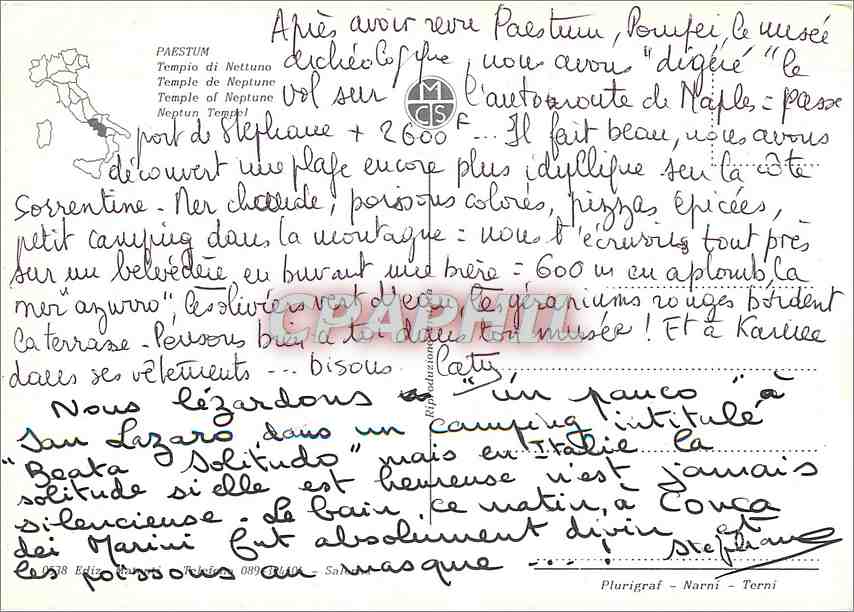 Après avoir revu Paestum, Pompei, le musée
archéologique, nous avons "digéré" le
vol sur l'autoroute de Naples = passe
port de Stéphane + 2600F... Il fait beau, nous avons
découvert une plage encore plus idyllique sur la côte
Sorrentine - Mer chaude, poissons colorés, pizzas épicées,
petit camping dans la montagne = nous t'écrivons tout près
sur un belvédère en buvant une bière = 600 m en aplomb, la
mer "azurro", les oliviers vert d'eau, les géraniums rouges bordent
la terrasse - Pensons bien à toi dans ton musée ! Et à Karine
dans ses vêtements ... bisous. Caty
Nous lézardons "un pauco" à
San Lazaro dans un camping intitulé
"Beata Solitudo" mais en Italie la
solitude si elle est heureuse n'est jamais
silencieuse. Le bain, ce matin, à Conca
dei Marini fut absolument divin et
les poissons au masque ... ! Stéphane
PAESTUM
Tempio di Nettuno
Temple de Neptune
Temple of Neptune
Neptun Tempel
MCS
CPAPHIL
Riproduzione
0538 Ediz. - Telefono 089
Plurigraf - Narni - Terni